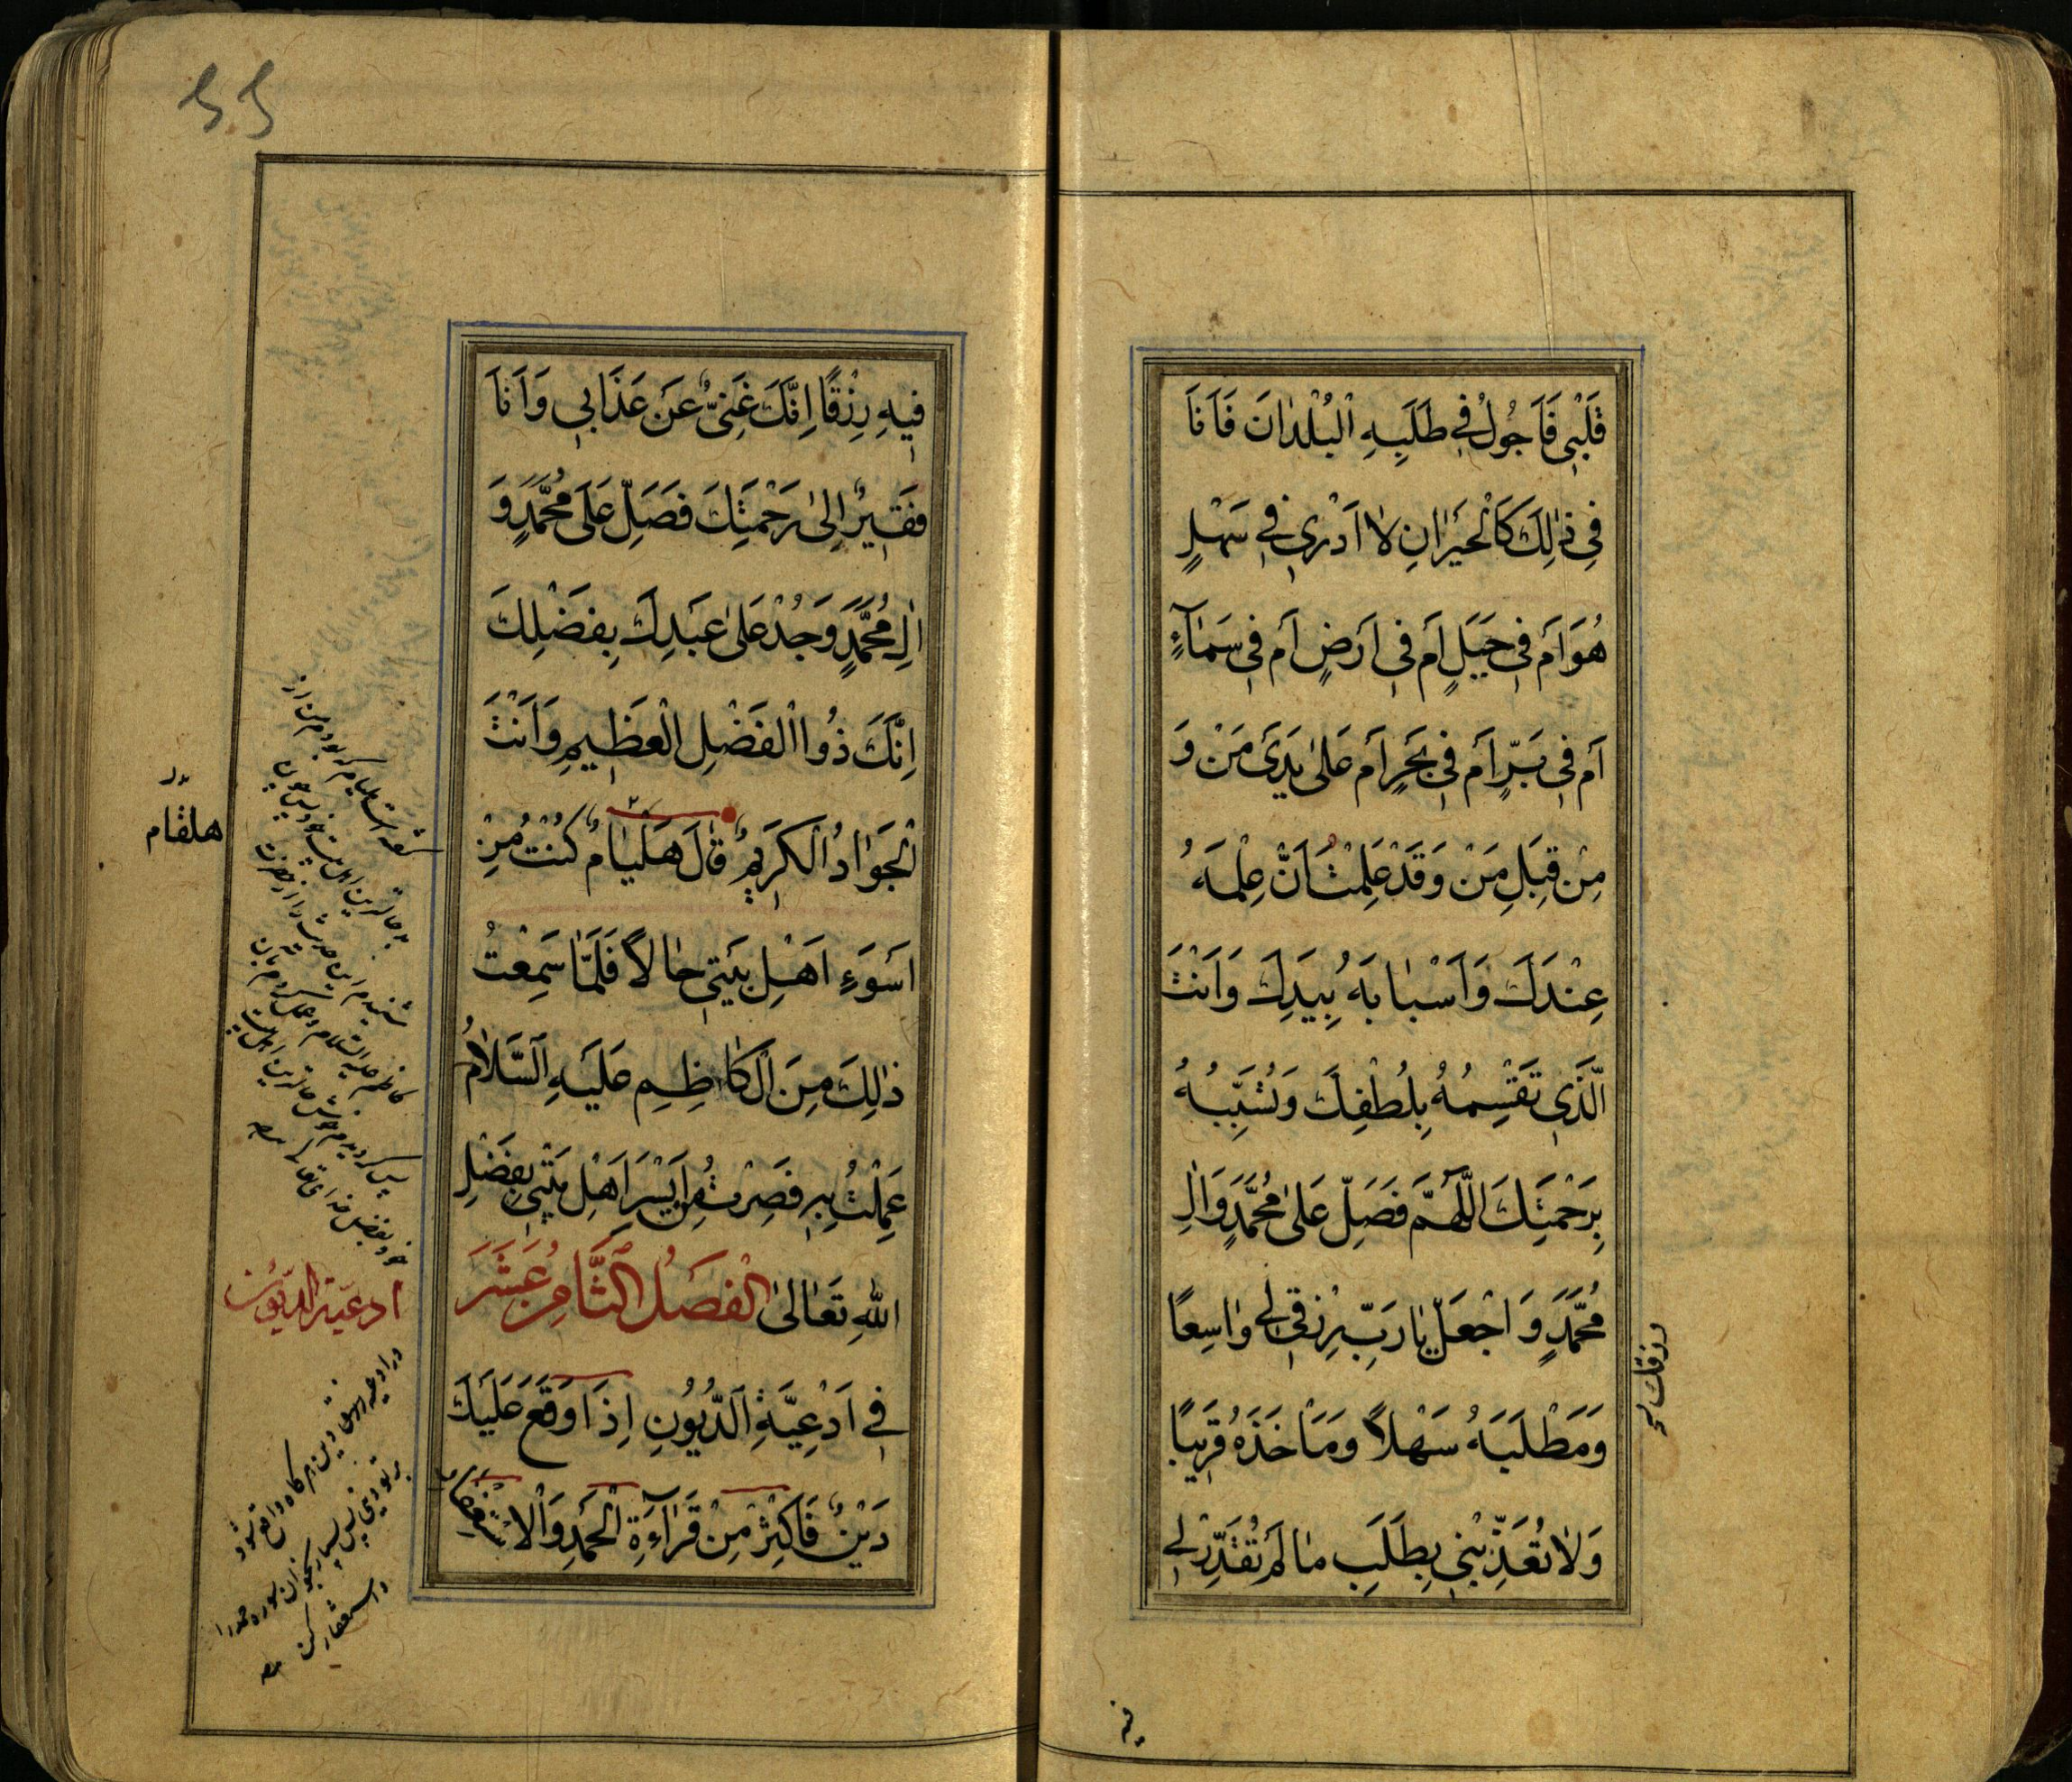 قَلْبِي فَاَجُولُ فِي طَلَبِهِ الْبُلْدٰانَ فَاَنَا
فِي ذٰلِكَ كَالْحَيْرٰانِ لاٰ اَدْرِي فِي سَهْلٍ
هُوَ اَمْ فِي جَبَلٍ اَمْ فِي اَرْضٍ اَمْ فِي سَمٰآءٍ
اَمْ فِي بَرٍّ اَمْ فِي بَحْرٍ اَمْ عَلىٰ يَدَيْ مَنْ وَ
مِنْ قِبَلِ مَنْ وَقَدْ عَلِمْتُ اَنَّ عِلْمَهُ
عِنْدَكَ وَاَسْبٰابَهُ بِيَدِكَ وَاَنْتَ
الَّذِي تَقْسِمُهُ بِلُطْفِكَ وَتُسَبِّبُهُ
بِرَحْمَتِكَ اَللّٰهُمَّ فَصَلِّ عَلىٰ مُحَمَّدٍ وَاٰلِ
مُحَمَّدٍ وَاجْعَلْ يٰا رَبِّ رِزْقِي لِي وٰاسِعًا
وَمَطْلَبَهُ سَهْلاً وَمَأْخَذَهُ قَرِيبًا
وَلاٰ تُعَذِّبْنِي بِطَلَبِ مٰا لَمْ تُقَدِّرْ لِي
رزقك
فيه
فِيهِ رِزْقًا اِنَّكَ غَنِيٌّ عَنْ عَذَابِي وَاَنَا
فَقِيرٌ اِلىٰ رَحْمَتِكَ فَصَلِّ عَلَى مُحَمَّدٍ وَ
اٰلِ مُحَمَّدٍ وَجُدْ عَلىٰ عَبْدِكَ بِفَضْلِكَ
اِنَّكَ ذُوا الْفَضْلِ الْعَظِيمِ وَاَنْتَ
الْجَوٰادُ الْكَرِيمُ قٰالَ هَلْيٰامٌ كُنْتُ مِنْ
اَسْوَءِ اَهْلِ بَيْتِي حٰالاً فَلَمّٰا سَمِعْتُ
ذٰلِكَ مِنَ الْكٰاظِمِ عَلَيْهِ السَّلاٰمُ
عَمِلْتُ بِهِ فَصِرْتُ مِنْ اَيْسَرِ اَهْلِ بَيْتِي بِفَضْلِ
اللهِ تَعٰالىٰ الْفَصْلُ الثَّامِنُ عَشَرَ
فِي اَدْعِيَةِ الدُّيُونِ اِذَا وَقَعَ عَلَيْكَ
دَيْنٌ فَاَكْثِرْ مِنْ قَرٰآءَةِ الْحَمْدِ وَالاِسْتِغْفٰارِ
هلقام
ادعية الديون
در ادعيه
دين هر كاه واقع شود
بر تو ديني پس بسيار بخوان سوره حمد را
واستغفار كن